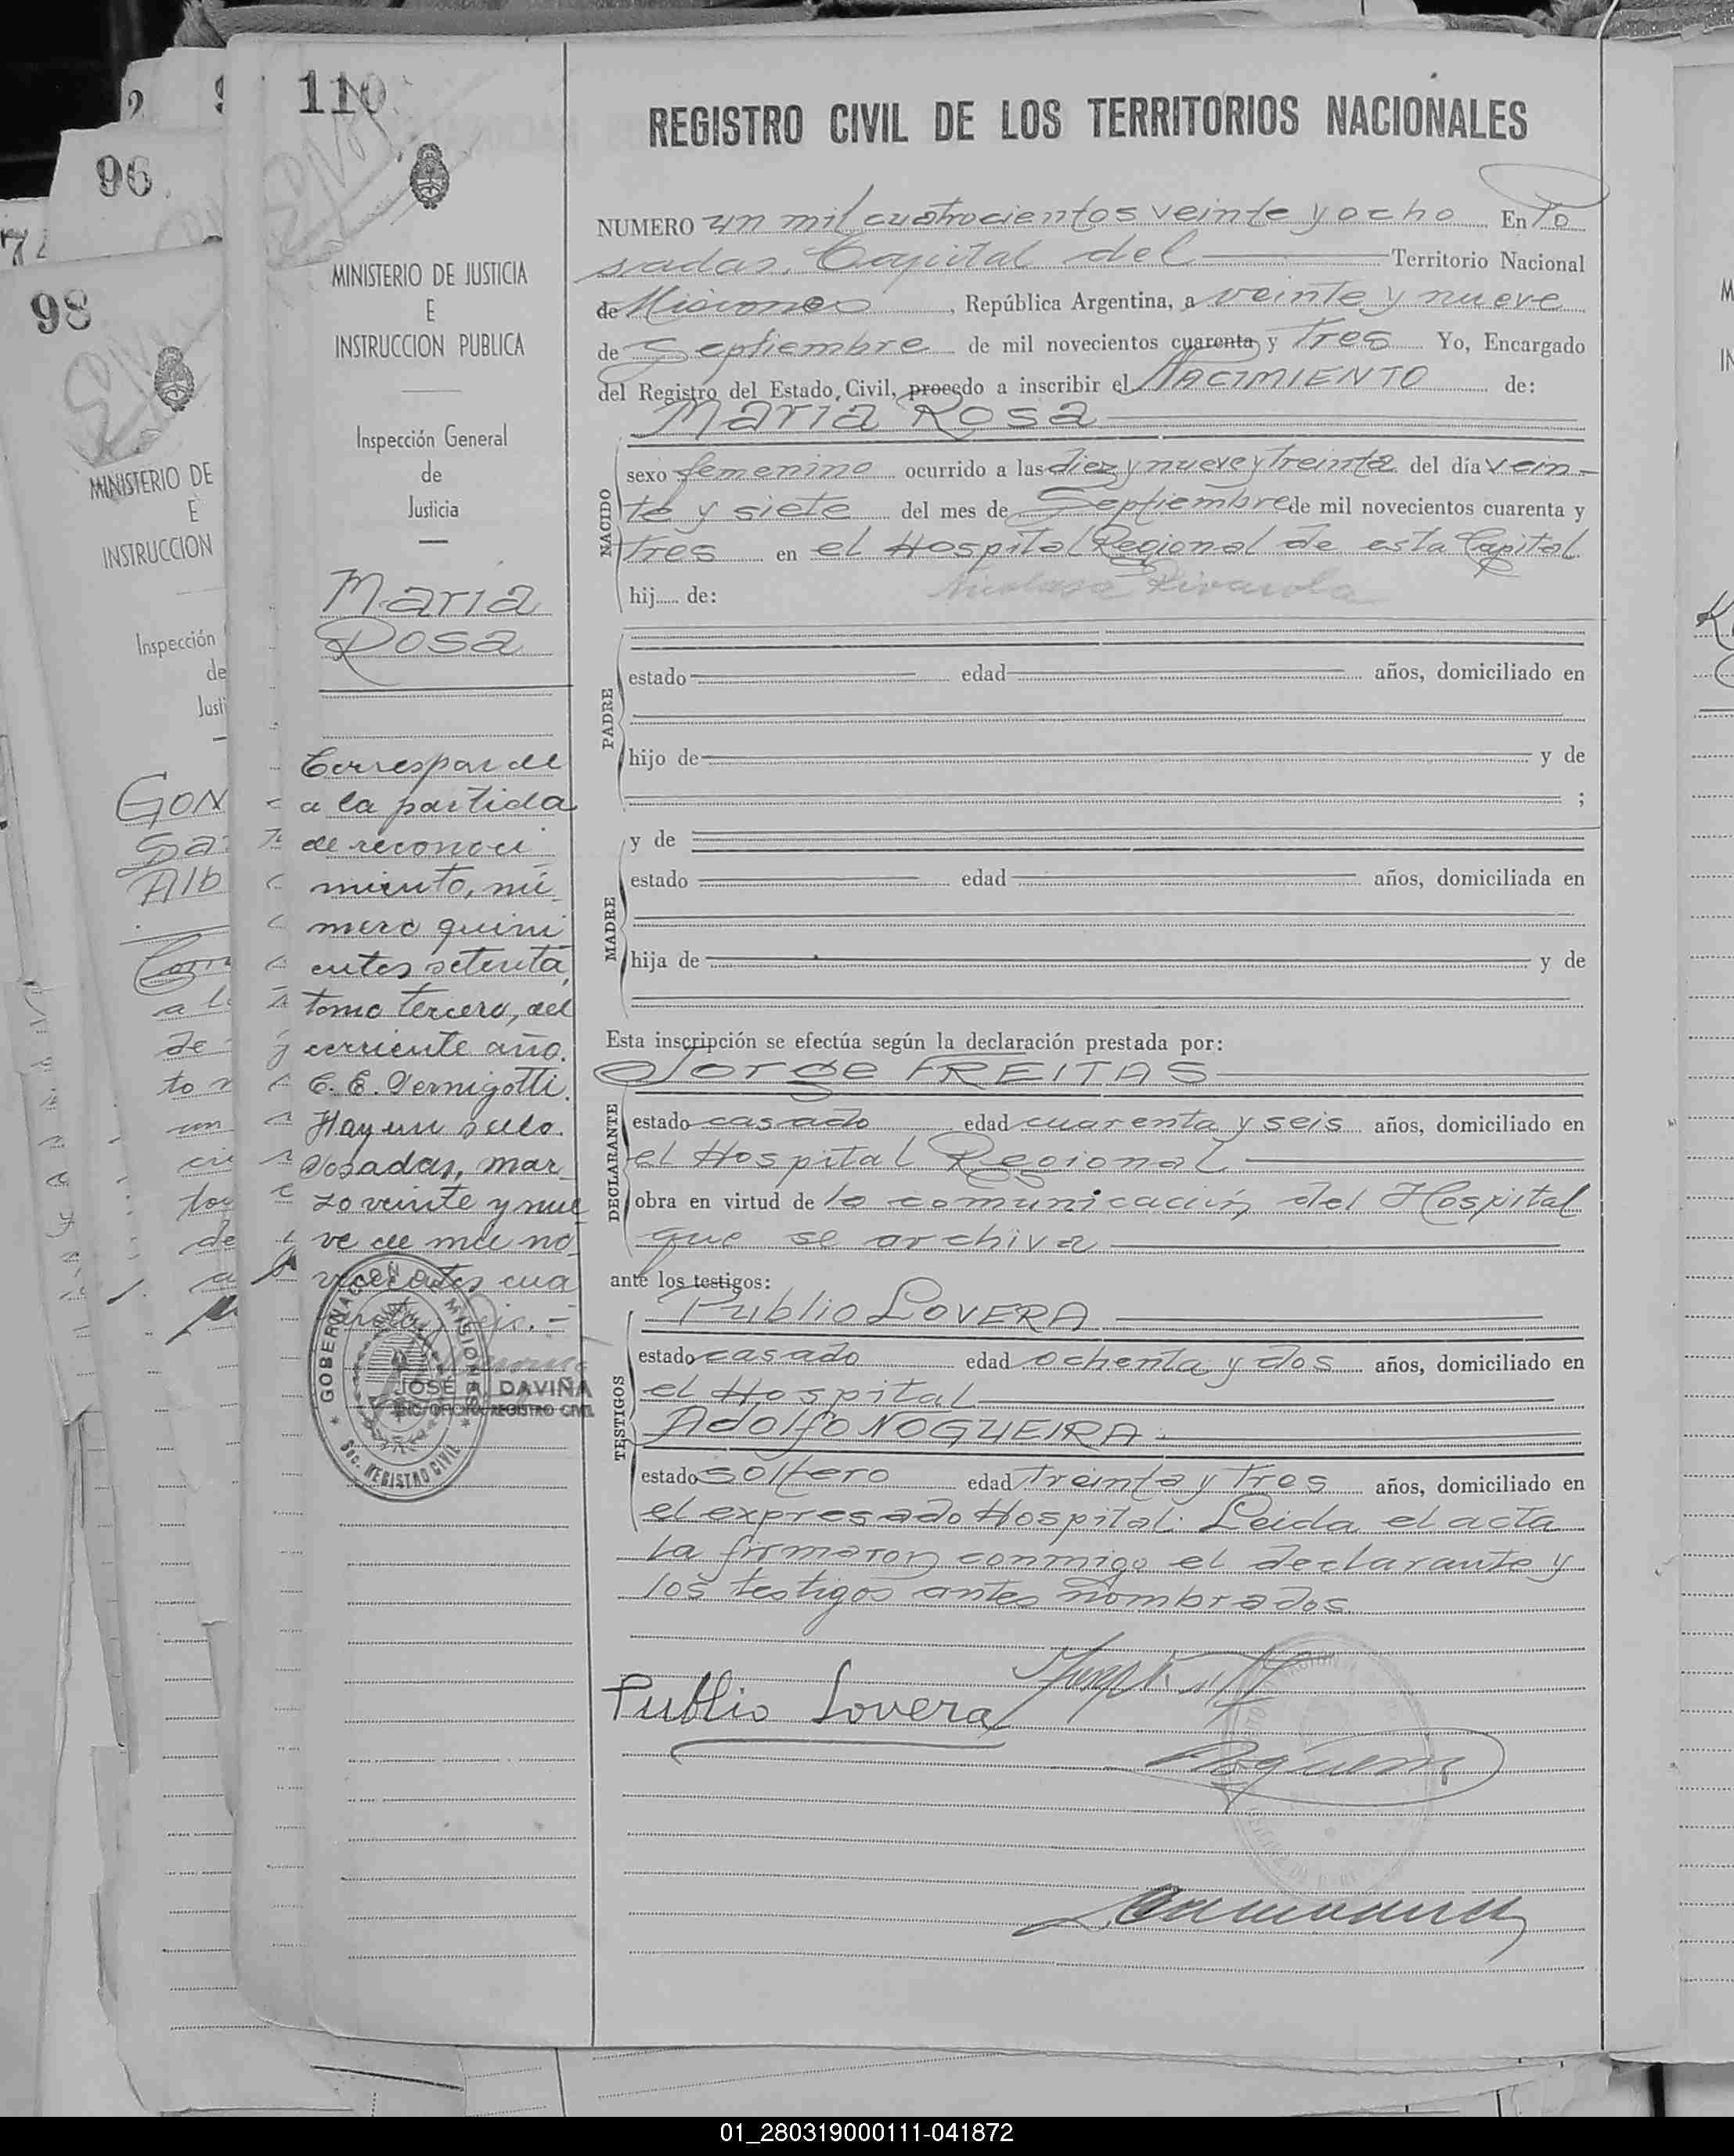 110
REGISTRO CIVIL DE LOS TERRITORIOS NACIONALES
MINISTERIO DE JUSTICIA
E
INSTRUCCION PUBLICA
Inspección General
de
Justicia
Maria
Rosa
Corresponde
a la partida
de reconoci
miento, nú
mero quini
entos setenta,
tomo tercero, del
corriente año.
C. E. Pernigotti.
Hay un sello.
Posadas, mar
zo veinte y nue
ve de mil no
vecientos cua
renta y seis.-
GOBERNACION DE MISIONES
JOSÉ R. DAVIÑA
ENC. OFICINA REGISTRO CIVIL
Sec. REGISTRO CIVIL
NUMERO un mil cuatrocientos veinte y ocho En Po
sadas, Capital del Territorio Nacional
de Misiones, República Argentina, a veinte y nueve
de Septiembre de mil novecientos cuarenta y tres Yo, Encargado
del Registro del Estado Civil, procedo a inscribir el NACIMIENTO de:
Maria Rosa
NACIDO
sexo femenino ocurrido a las diez y nueve y treinta del día vein-
te y siete del mes de Septiembre de mil novecientos cuarenta y
tres en el Hospital Regional de esta Capital
hij..... de: Nicolasa Rivarola
PADRE
estado edad años, domiciliado en
hijo de y de
;
MADRE
y de
estado edad años, domiciliada en
hija de y de
Esta inscripción se efectúa según la declaración prestada por:
Jorge FREITAS
DECLARANTE
estado casado edad cuarenta y seis años, domiciliado en
el Hospital Regional
obra en virtud de la comunicación del Hospital
que se archiva
ante los testigos:
TESTIGOS
Publio LOVERA
estado casado edad ochenta y dos años, domiciliado en
el Hospital
Adolfo NOGUEIRA
estado soltero edad treinta y tres años, domiciliado en
el expresado Hospital. Leida el acta
la firmaron conmigo el declarante y
los testigos antes nombrados.
Publio Lovera
2
96
98
MINISTERIO DE
E
INSTRUCCION
Inspección
de
Justi
GON
Alb
a l
de
to
un
de
01_280319000111-041872